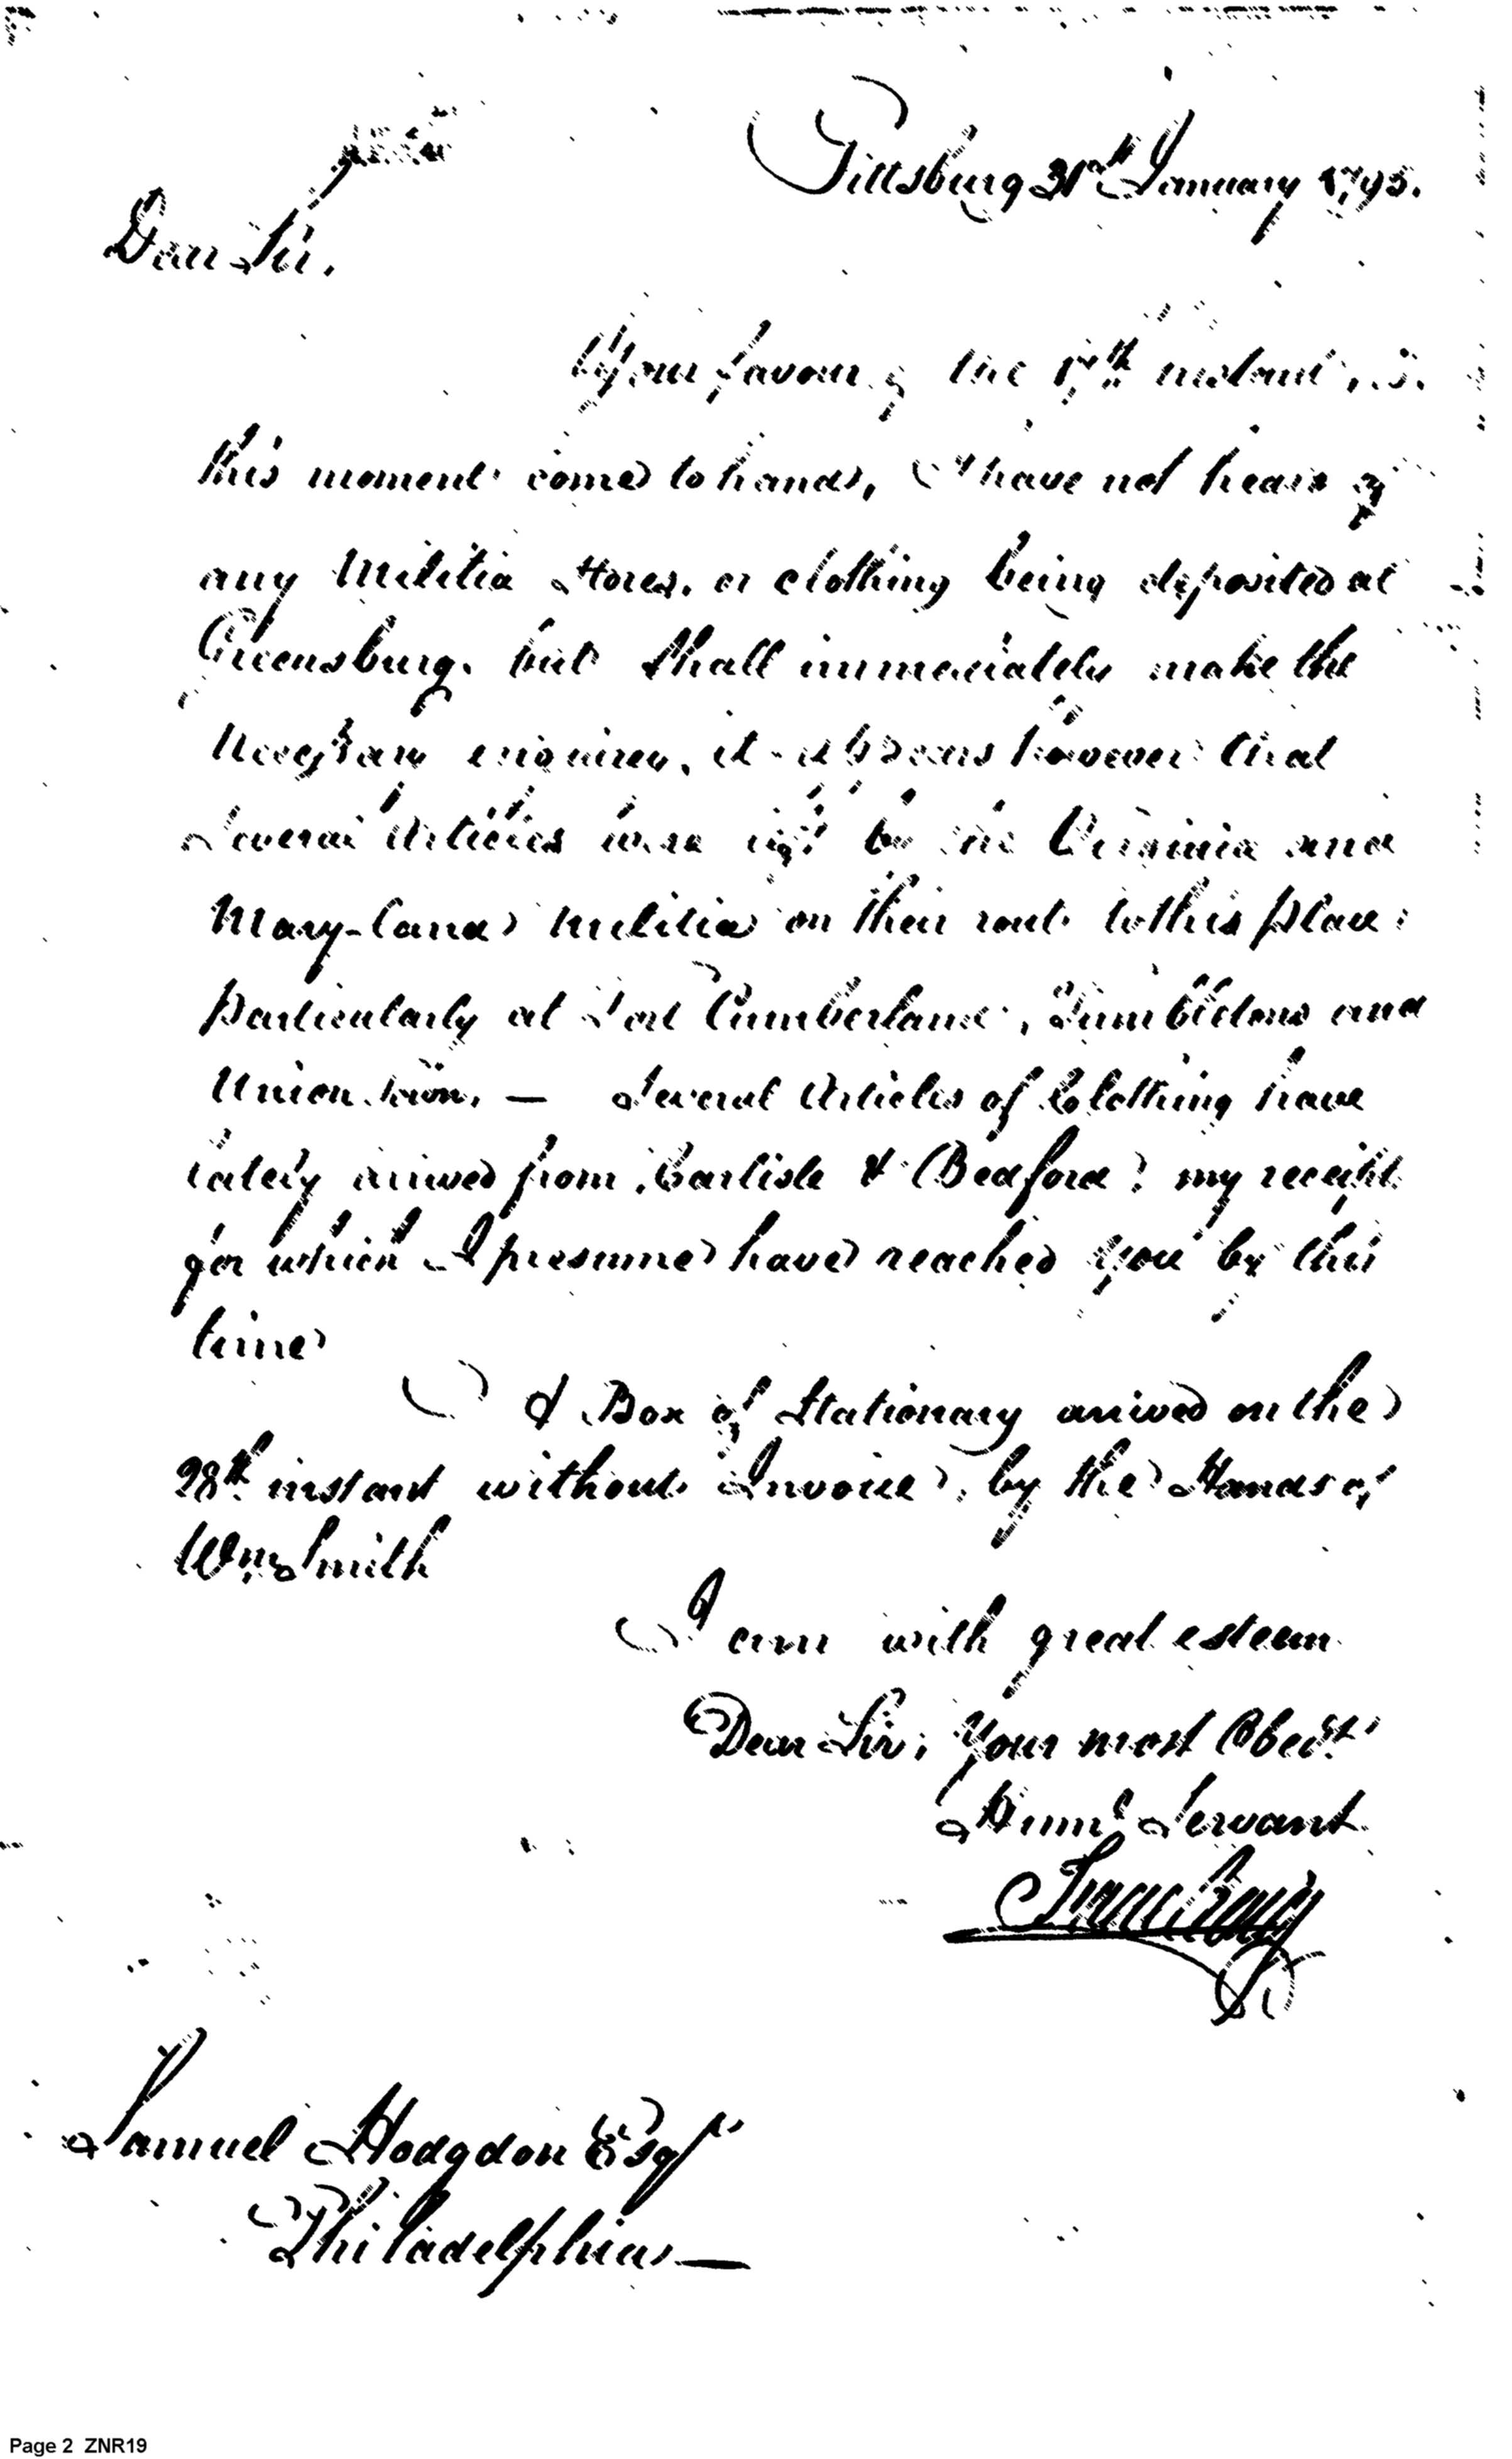 Pittsburg 31st January 1795.
Dear Sir.
Your favour of the 17th instant, is
this moment come to hand, I have not heard of
any Militia Stores, or clothing being deposited at
Greensburg, but shall immediately make the
necessary enquiry, it appears however that
several Articles were left by the Virginia and
Mary-land Militia on their rout to this place
particularly at Fort Cumberland, and
Union town, — Several Articles of Clothing have
lately arived from Carlisle & Bedford my receipt
for which I presume have reached you by this
time
A Box of Stationary arived on the
28th instant without Invoice, by the Hands of
Wm Smith
I am with great esteem
Dear Sir, Your most Obedt
Huml Servant
Isaac Craig
Samuel Hodgdon Esqr
Philadelphia —
Page 2 ZNR19